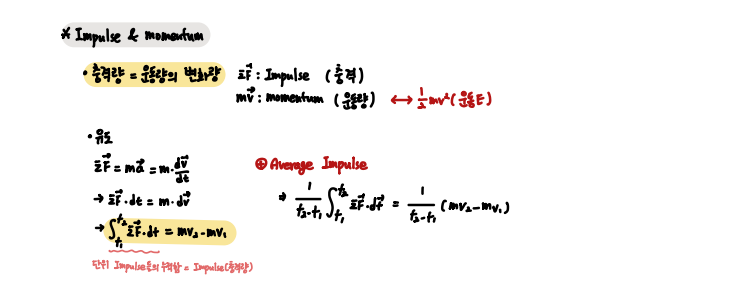 * Impulse & momentum
• 충격량 = 운동량의 변화량
ΣF⃗ : Impulse (충격)
mv⃗ : momentum (운동량) ↔ ½mv² (운동E)
• 유도
ΣF⃗ = ma⃗ = m·dv⃗/dt
→ ΣF⃗·dt = m·dv⃗
→ ∫_{t₁}^{t₂} ΣF⃗·dt = mv₂ - mv₁
단위 Impulse들의 누적합 = Impulse(충격량)
⊕ Average Impulse
⇒ 1/(t₂-t₁) ∫_{t₁}^{t₂} ΣF⃗·dt⃗ = 1/(t₂-t₁) (mv₂-mv₁)